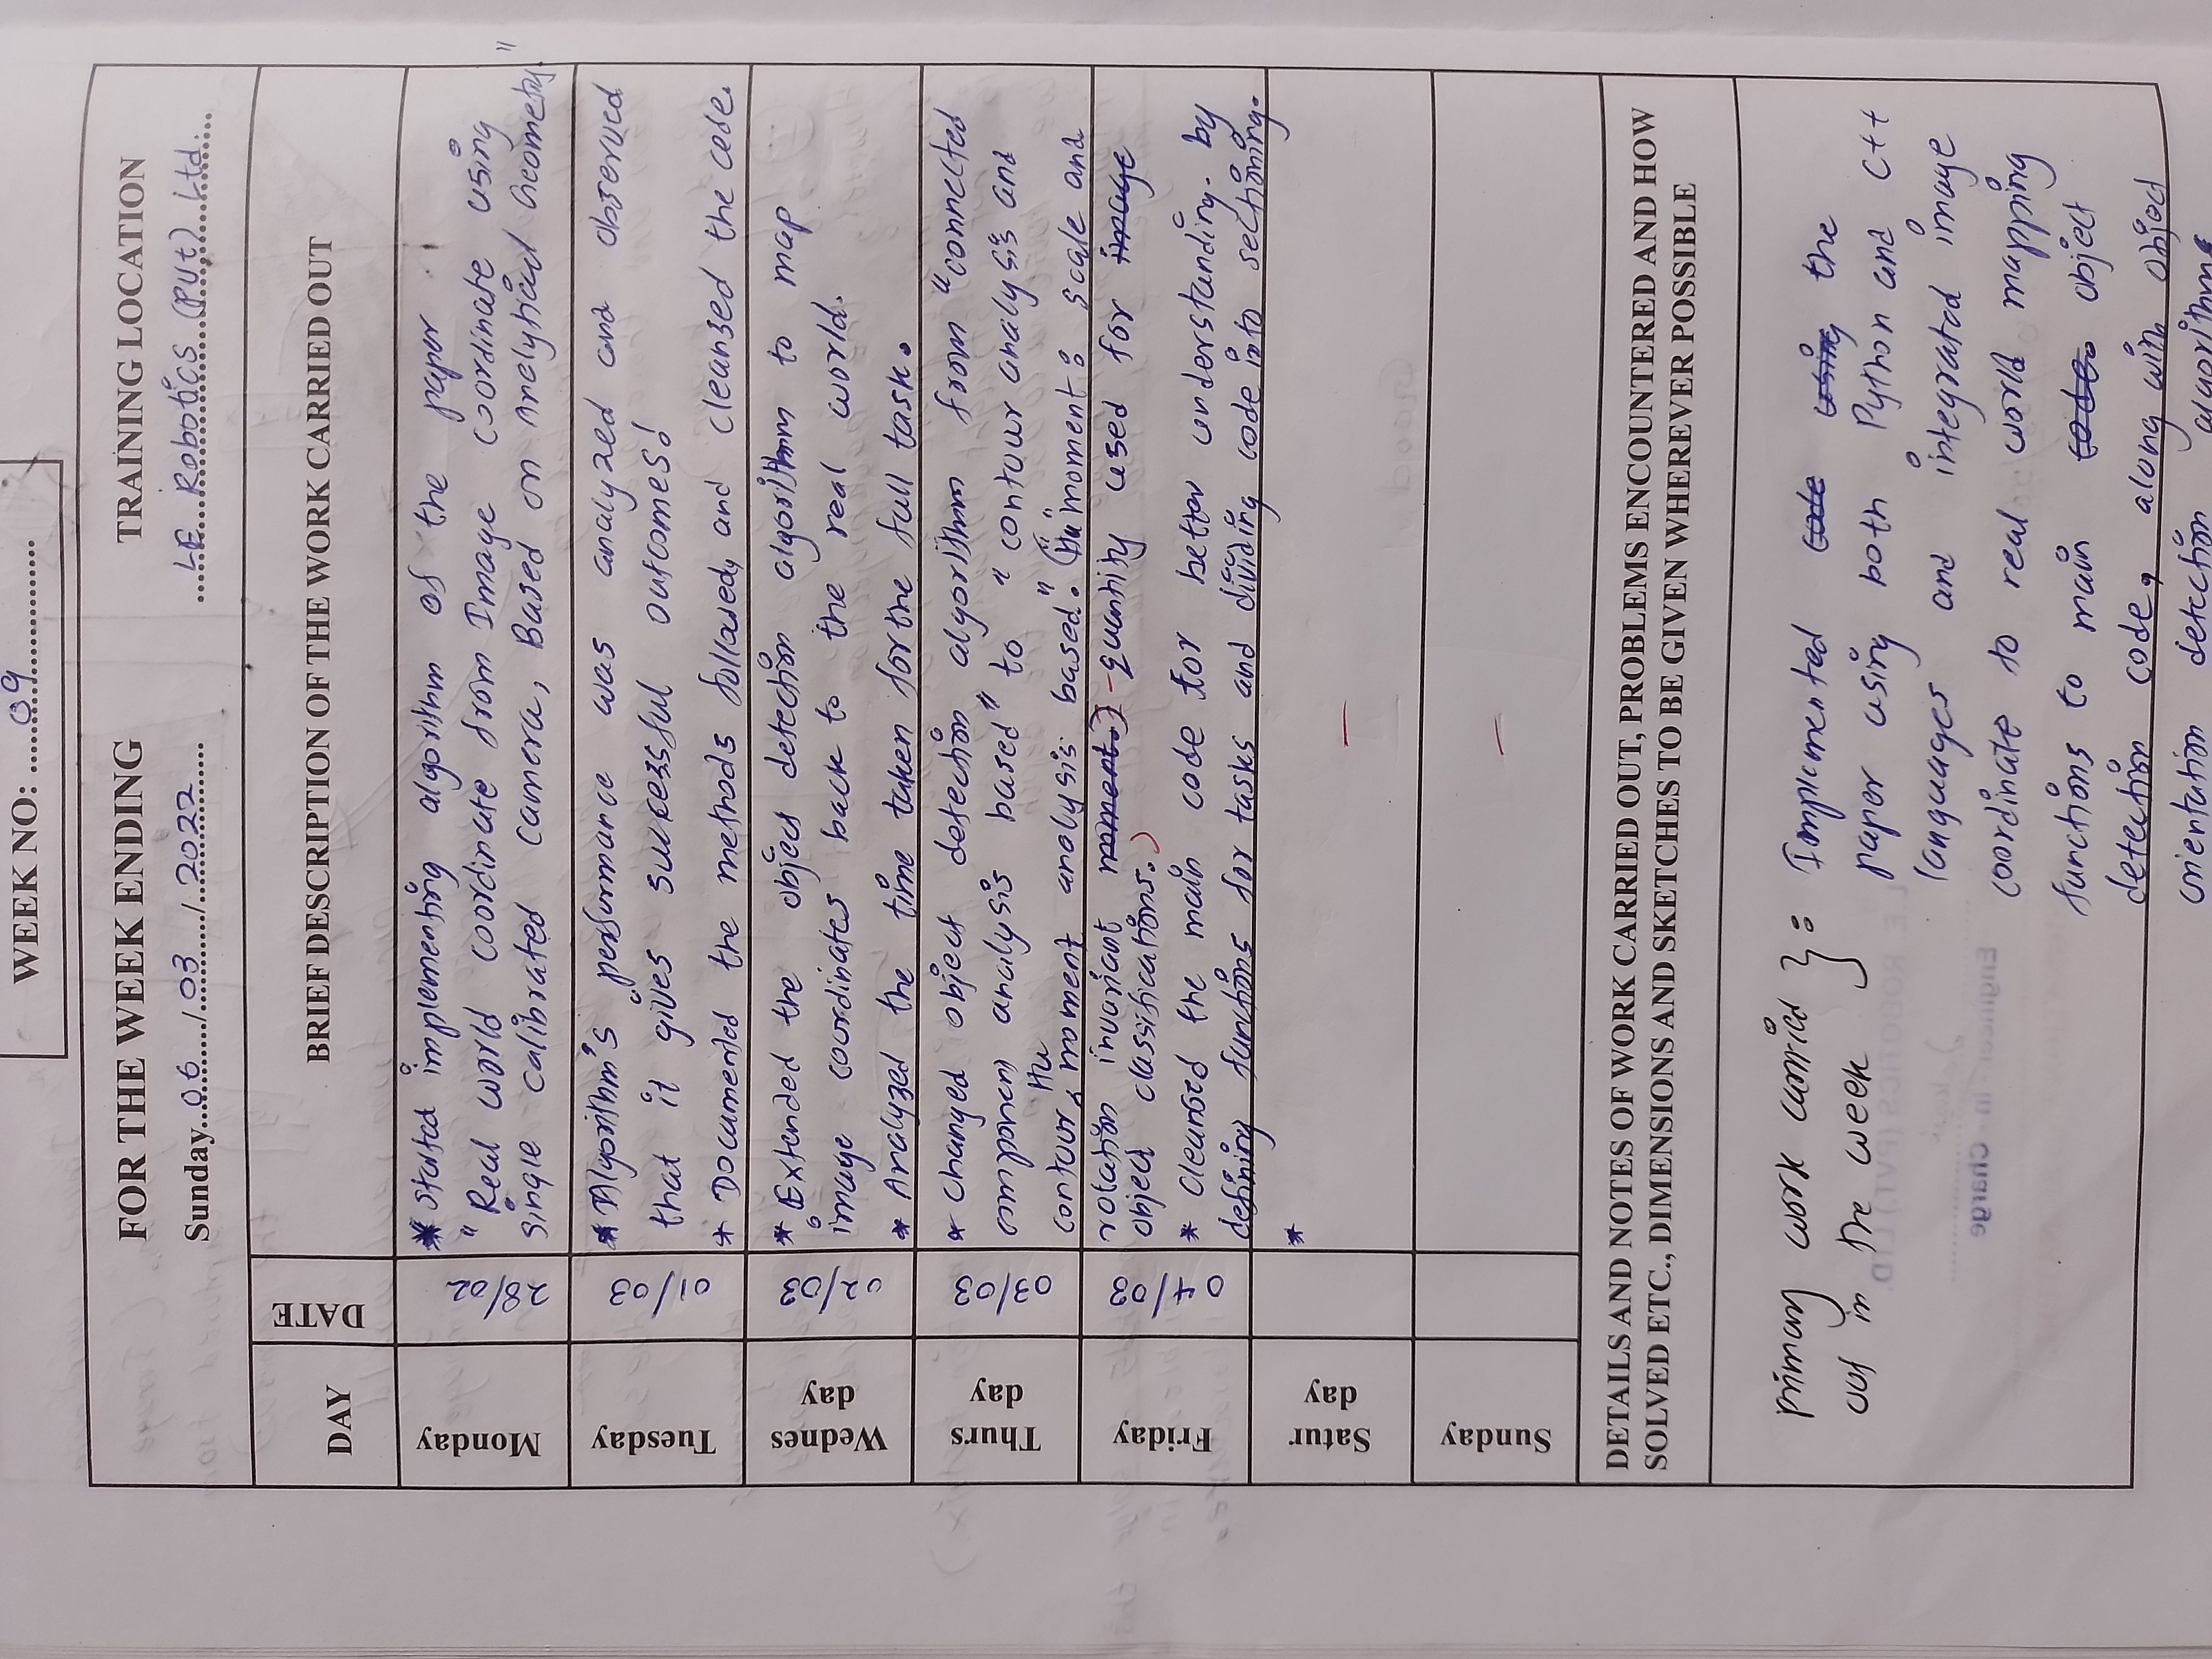 WEEK NO: ....09....
FOR THE WEEK ENDING
TRAINING LOCATION
Sunday...06..../...03..../...2022....
LE Robotics (Pvt) Ltd.
DAY
DATE
BRIEF DESCRIPTION OF THE WORK CARRIED OUT
Monday
28/02
* Started implementing algorithm of the paper
"Real world coordinate from Image coordinate using
single calibrated camera, Based on Analytical Geometry."
Tuesday
01/03
* Algorithm's performance was analyzed and observed
that it gives successful outcomes!
* Documented the methods followed, and cleansed the code.
Wednes
day
02/03
* Extended the object detection algorithm to map
image coordinates back to the real world.
* Analyzed the time taken for the full task.
Thurs
day
03/03
* Changed object detection algorithm from "connected
component analysis based" to "contour analysis and
contour Hu moment analysis based." ("Hu" moment : scale and
Friday
04/03
rotation invariant moment.) - quantity used for image
object classifications.)
* Cleansed the main code for better understanding. by
defining functions for tasks and dividing code into sectioning.
Satur
day
*
—
Sunday
—
DETAILS AND NOTES OF WORK CARRIED OUT, PROBLEMS ENCOUNTERED AND HOW
SOLVED ETC., DIMENSIONS AND SKETCHES TO BE GIVEN WHEREVER POSSIBLE
primary work carried
out in the week } :
Implemented code using the
paper using both Python and C++
languages and integrated image
coordinate to real world mapping
functions to main code. object
detection code, along with object
orientation detection algorithms